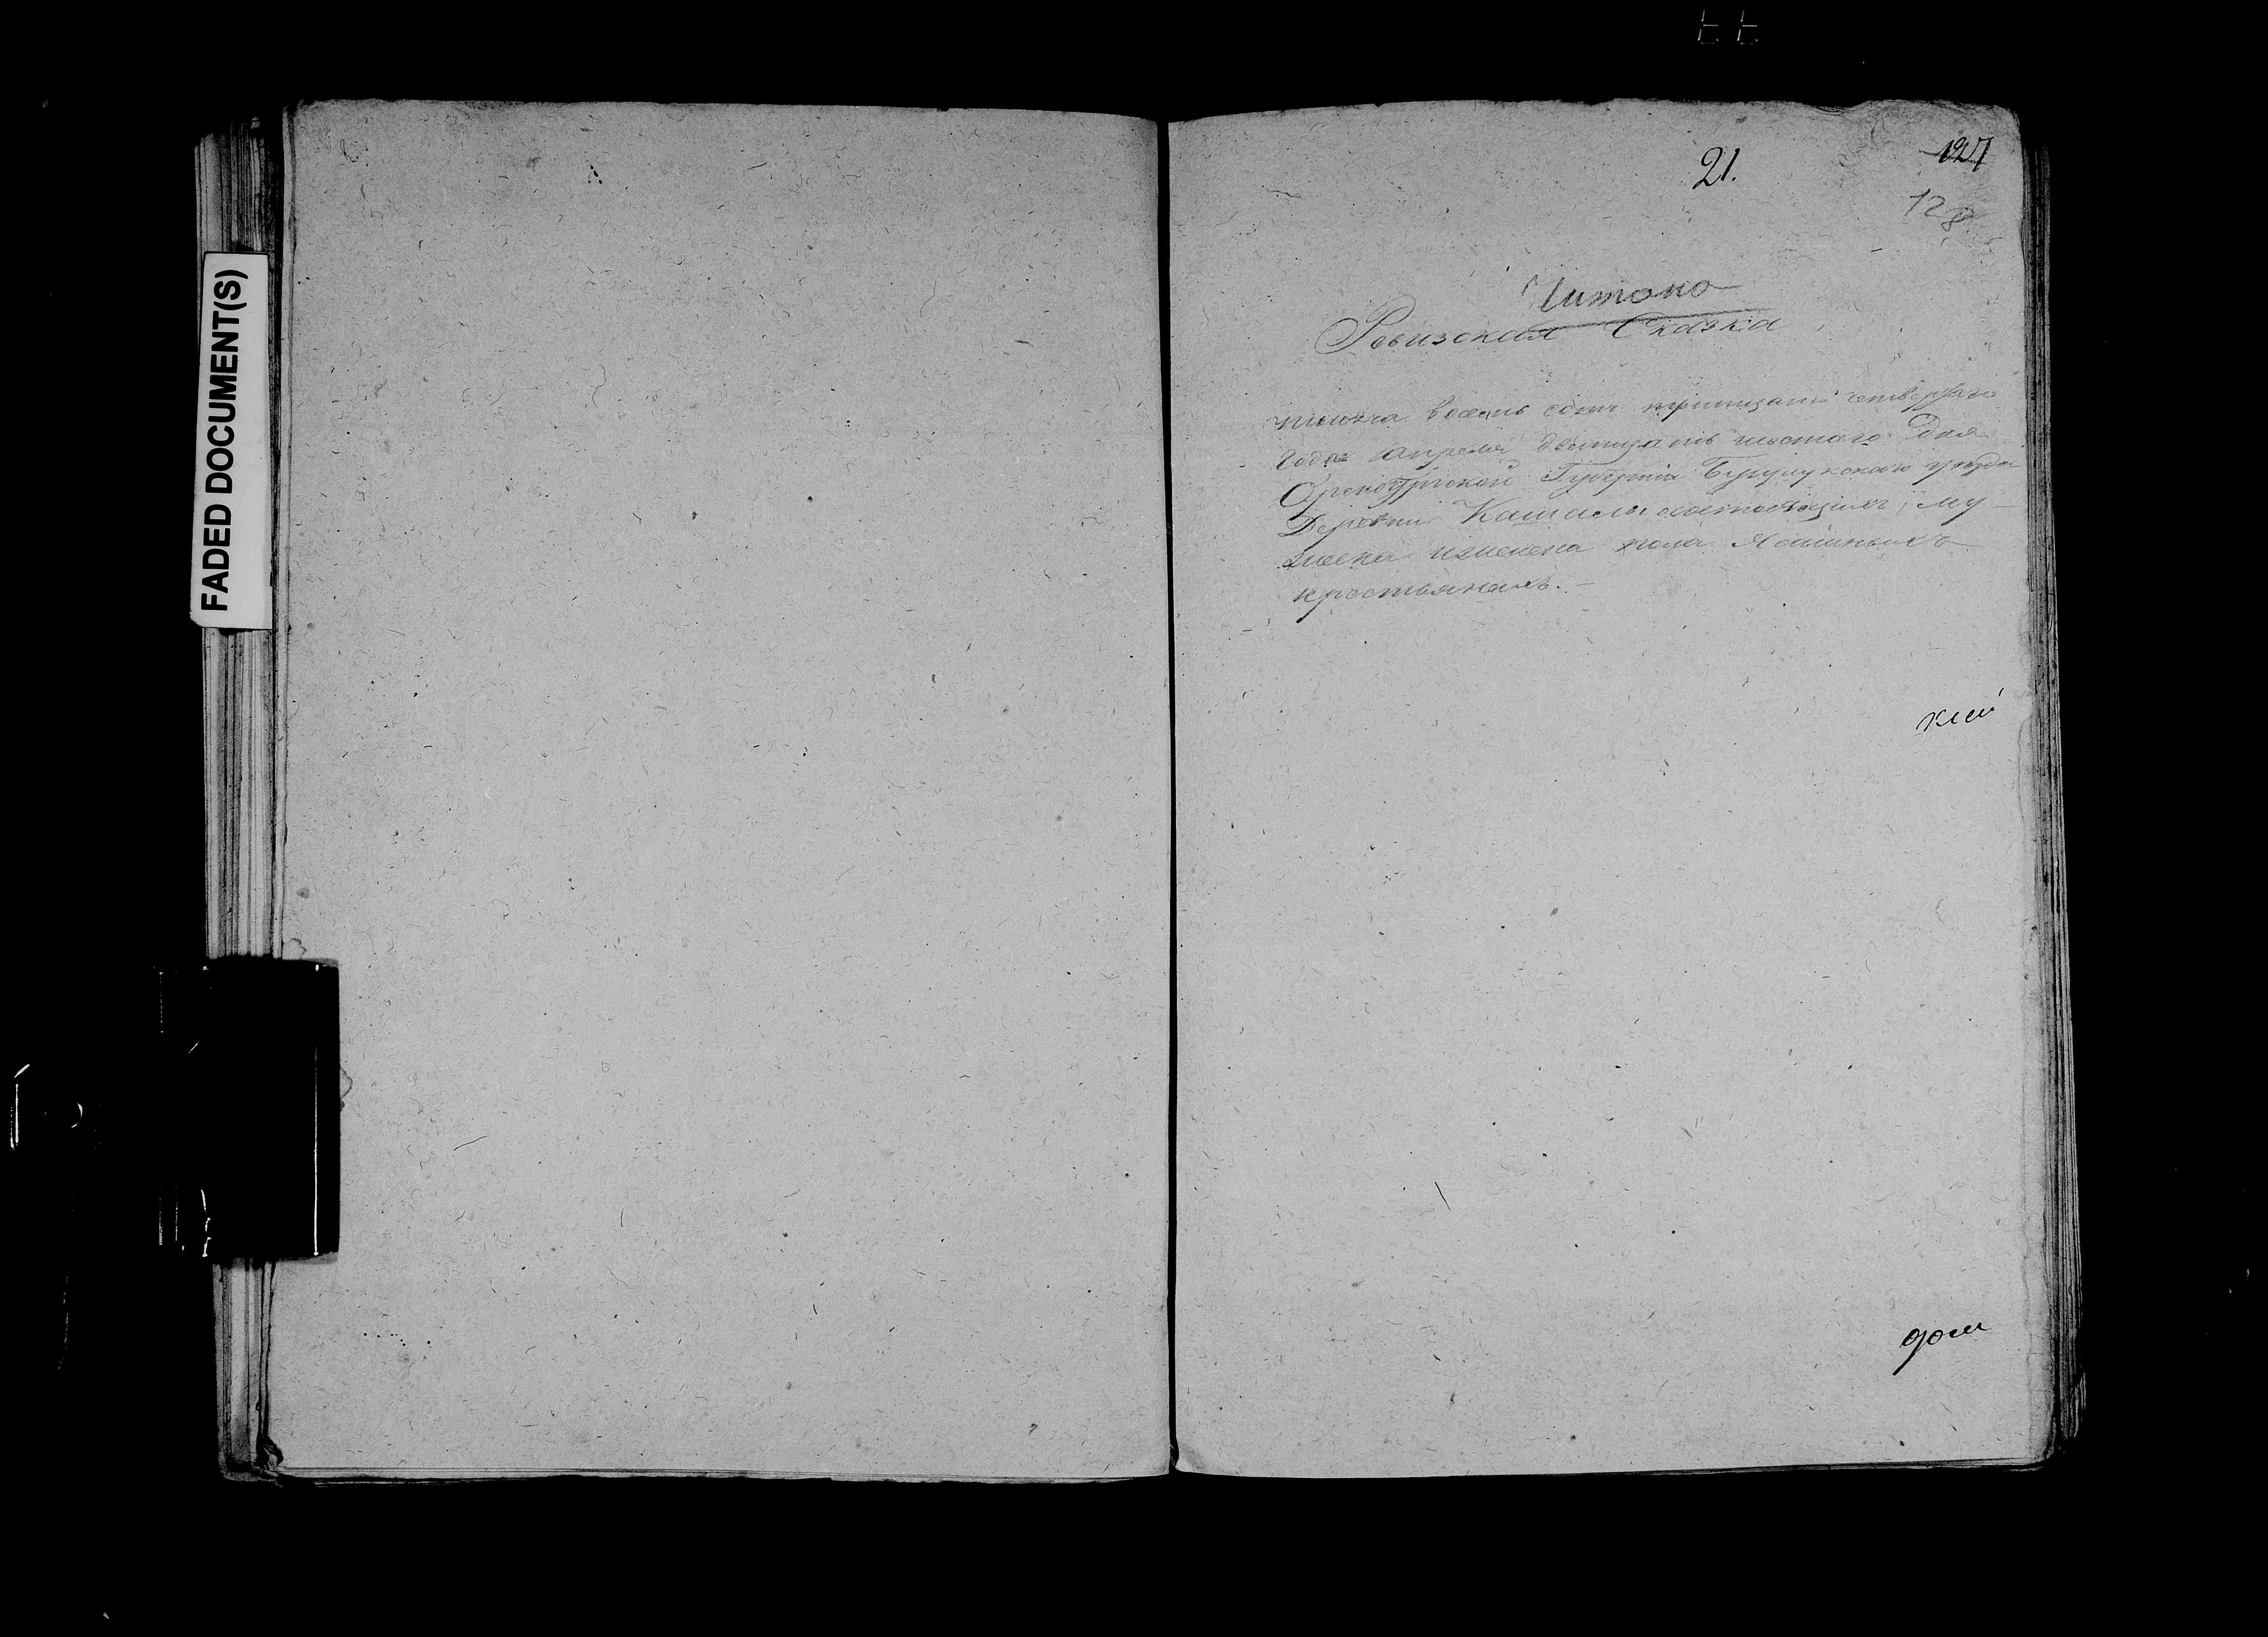 FADED DOCUMENT(S)
21.
127
128
Читано
Ревизская Сказка
тысяча восемь сотъ тритцать четвертаго
года апреля дватцать шестаго Дня
Оренбургской Губернiи Бузулукскаго уезда
Деревни состоящимъ му
жеска и женска пола
крестьянамъ.-
кiй
дом